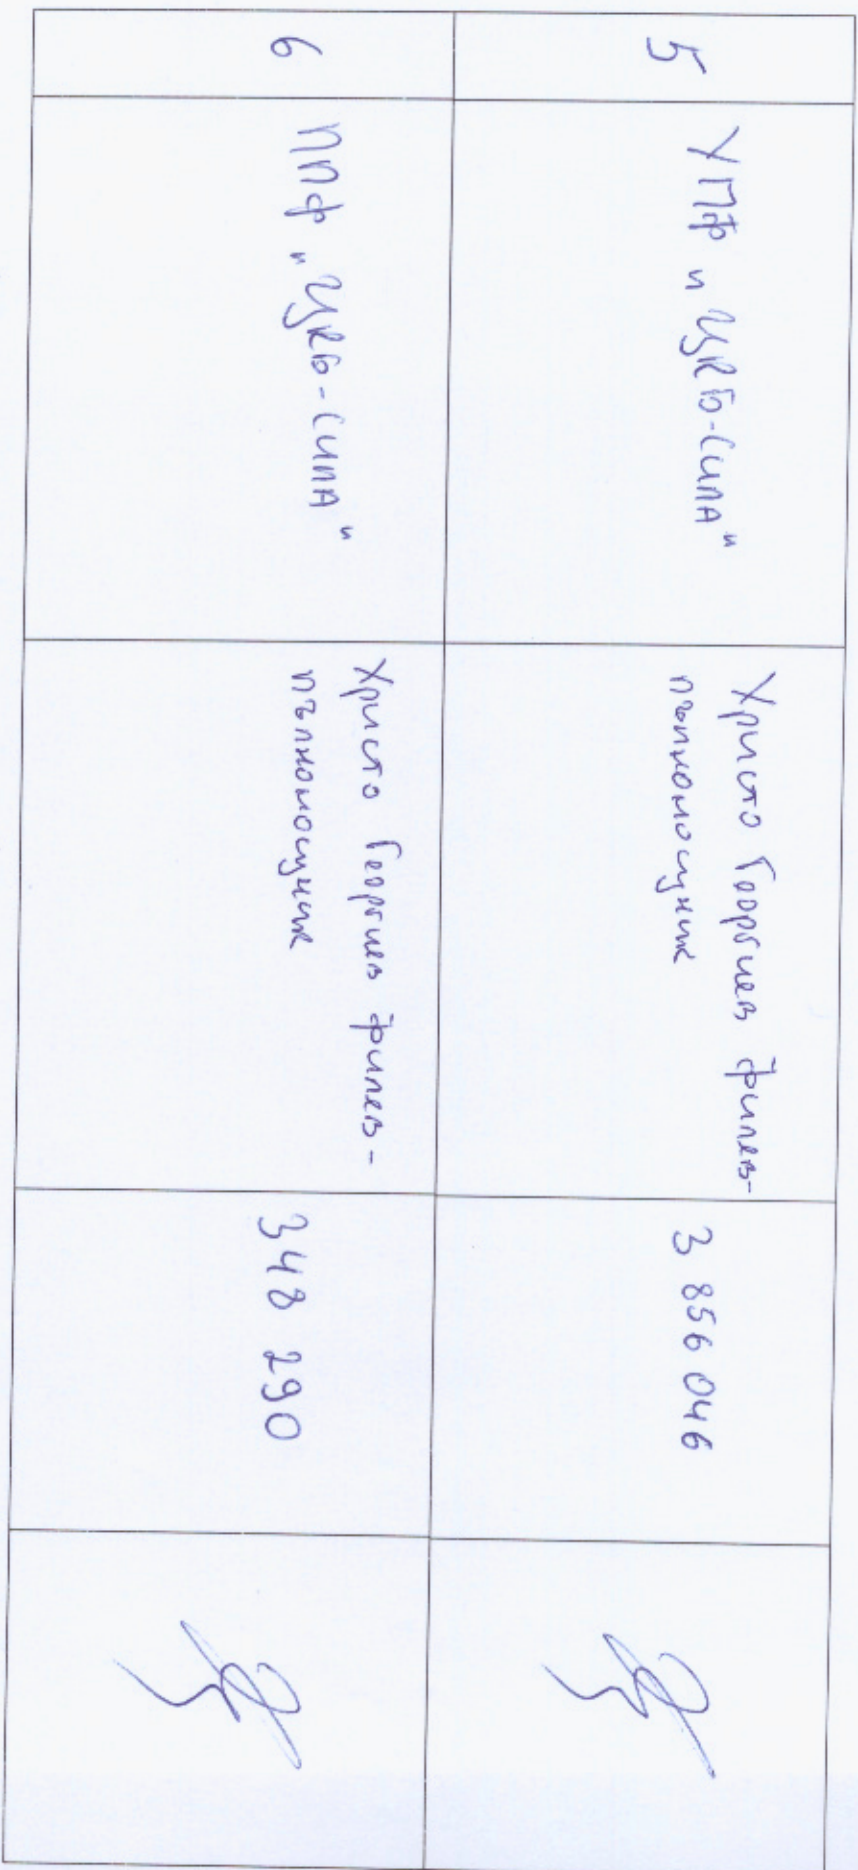 5
УПФ „ЦКБ-СИЛА"
Христо Георгиев Филев-
пълномощник
3 856 046
6
ППФ „ЦКБ-СИЛА"
Христо Георгиев Филев-
пълномощник
348 290